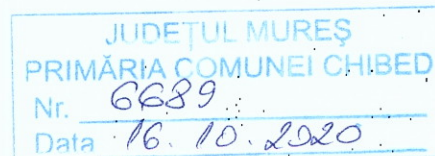 JUDEȚUL MUREȘ
PRIMĂRIA COMUNEI CHIBED
Nr. 6689
Data 16. 10. 2020